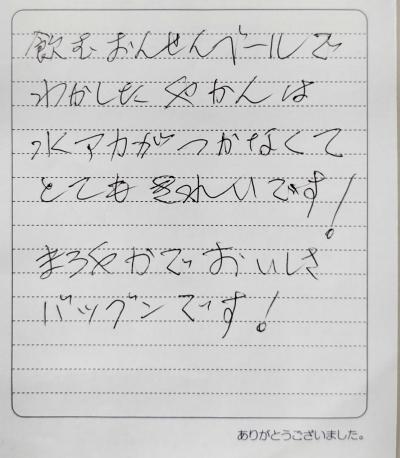 飲むおんせんベールで
わかしたやかんは
水アカがつかなくて
とてもきれいです!
まろやかでおいしさ
バツグンです!
ありがとうございました。